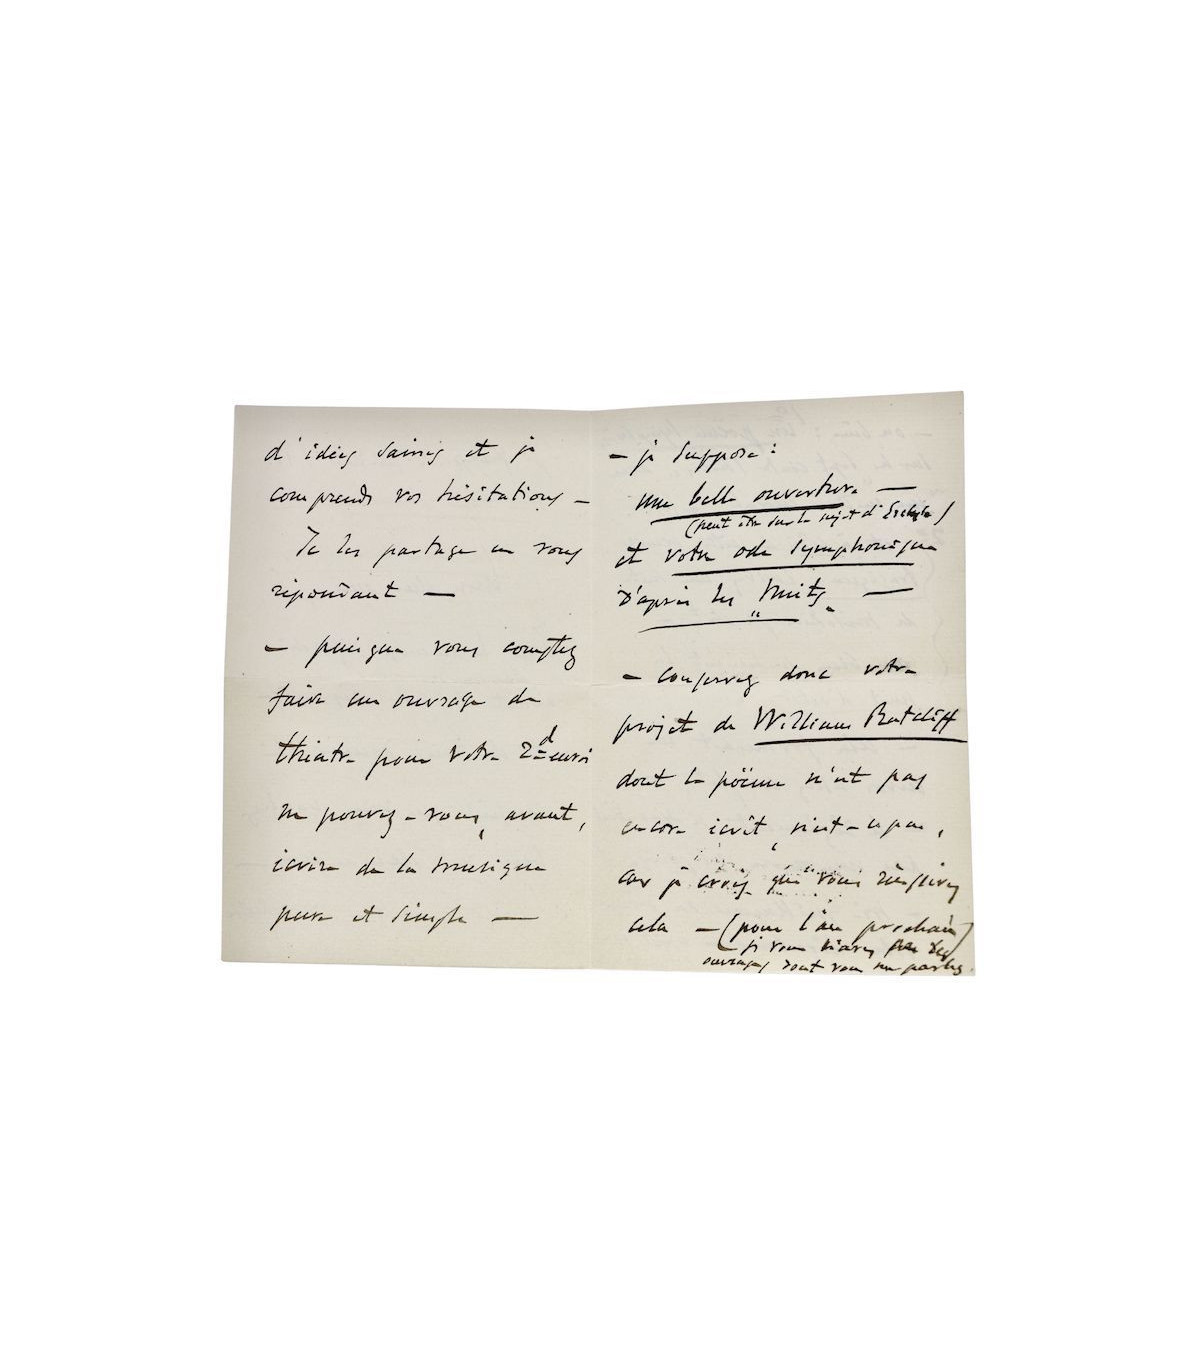 d'idées saines et je
comprends vos hésitations —
Je les partage en vous
répondant —
— puisque vous comptez
faire un ouvrage de
théatre pour votre 2d envoi
ne pouvez-vous, avant,
écrire de la musique
pure et simple —
— je suppose :
une belle ouverture —
(peut être sur le sujet d'Eschyle)
et votre ode symphonique
d'après les "Nuits" —
— conservez donc votre
projet de William Ratcliff
dont le poëme n'est pas
encore écrit, n'est-ce pas,
car je crois que vous réussirez
cela — (pour l'an prochain)
si vous n'avez pas
ouvrages dont vous me parlez.